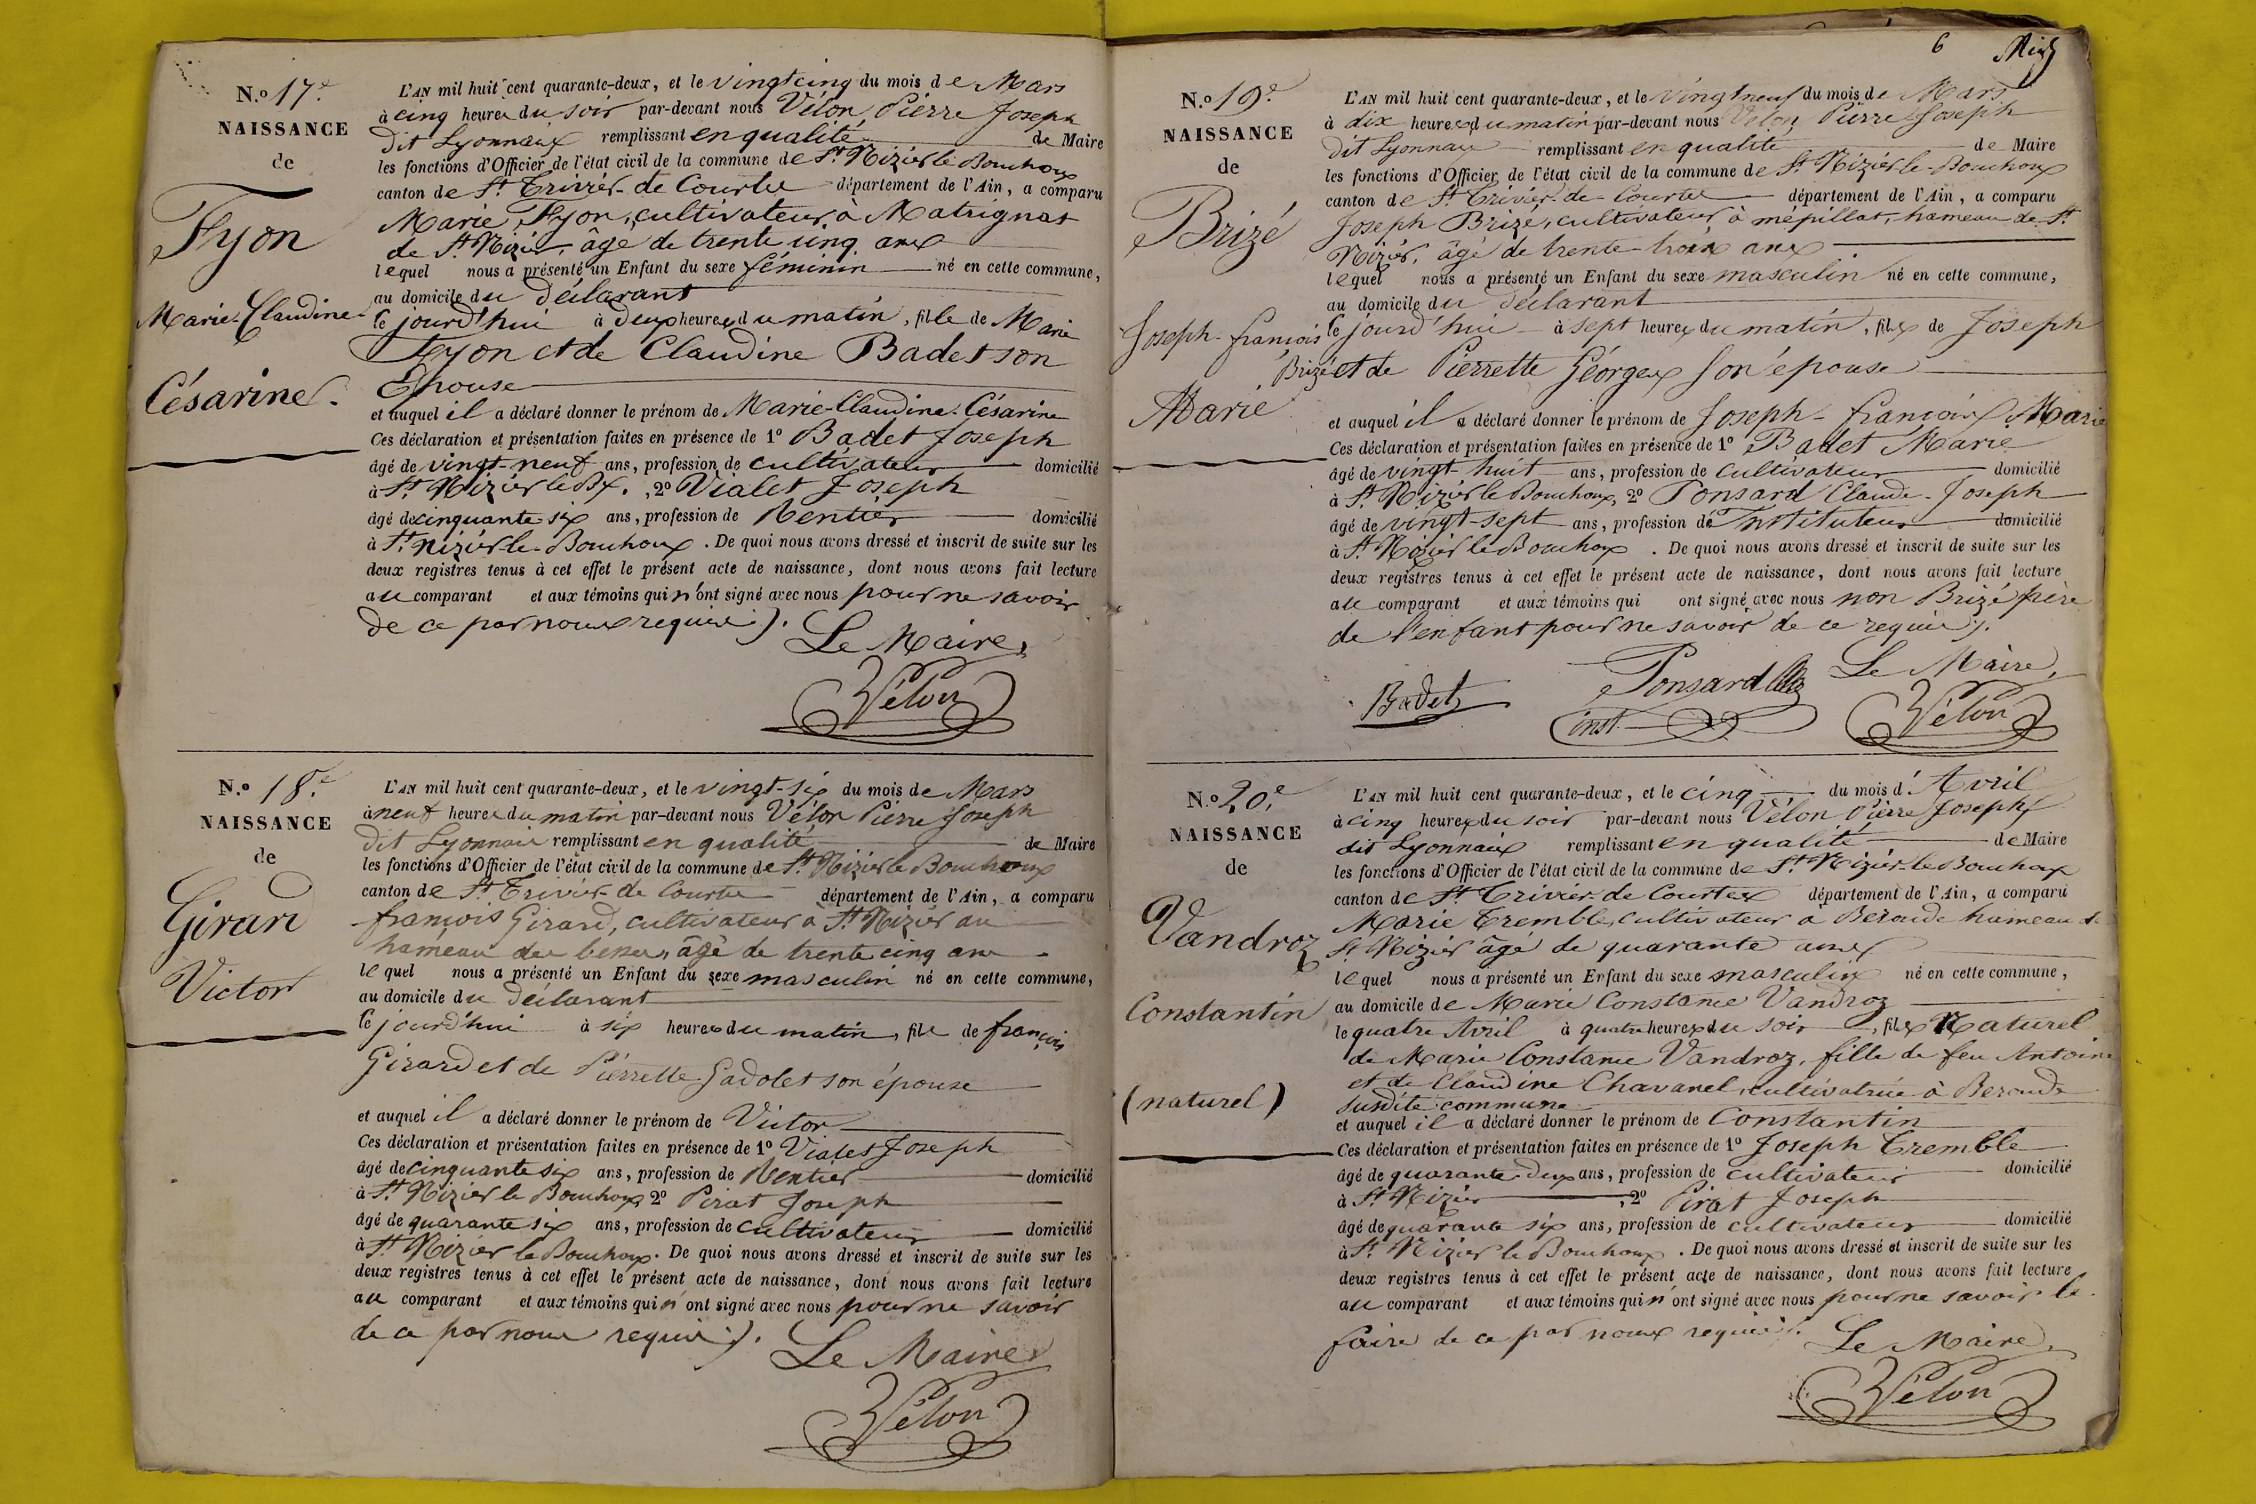 N.º 17.e
NAISSANCE
de
Fyon
Marie-Claudine-
Césarine.
L'AN mil huit cent quarante-deux, et le vingt cinq du mois de Mars
à cinq heures du soir par-devant nous Vélon Pierre Joseph
dit Lyonnais remplissant en qualité de Maire
les fonctions d'Officier de l'état civil de la commune de St Nizier le Bouchoux
canton de St Trivier-de Courtes département de l'Ain, a comparu
Marie Fyon, cultivateur à Matrignat
de St Nizier, âgé de trente cinq ans
lequel nous a présenté un Enfant du sexe féminin né en cette commune,
au domicile du déclarant
ce jourd'hui à deux heures du matin, fille de Marie
Fyon et de Claudine Badet son
Épouse
et auquel il a déclaré donner le prénom de Marie-Claudine-Césarine
Ces déclaration et présentation faites en présence de 1º Badet Joseph
âgé de vingt-neuf ans, profession de cultivateur domicilié
à St Nizier le Bx. , 2º Vialet Joseph
âgé de cinquante six ans, profession de Rentier domicilié
à St nizier-le-Bouchoux . De quoi nous avons dressé et inscrit de suite sur les
deux registres tenus à cet effet le présent acte de naissance, dont nous avons fait lecture
au comparant et aux témoins qui n'ont signé avec nous pour ne savoir
de ce par nous requis ).
Le Maire,
Vélon
N.º 18.e
NAISSANCE
de
Girard
Victor
L'AN mil huit cent quarante-deux, et le vingt-six du mois de Mars
à neuf heures du matin par-devant nous Vélon Pierre Joseph
dit Lyonnais remplissant en qualité de Maire
les fonctions d'Officier de l'état civil de la commune de St Nizier le Bouchoux
canton de St Trivier-de Courtes département de l'Ain, a comparu
françois Girard, cultivateur à St Nizier au
hameau des âgé de trente cinq ans
lequel nous a présenté un Enfant du sexe masculin né en cette commune,
au domicile du déclarant
ce jourd'hui à six heures du matin, fils de françois
Girard et de Pierrette Gadolet son épouse
et auquel il a déclaré donner le prénom de Victor
Ces déclaration et présentation faites en présence de 1º Vialet Joseph
âgé de cinquante six ans, profession de Rentier domicilié
à St Nizier le Bouchoux, 2º Pirat Joseph
âgé de quarante six ans, profession de cultivateur domicilié
à St Nizier le Bouchoux. De quoi nous avons dressé et inscrit de suite sur les
deux registres tenus à cet effet le présent acte de naissance, dont nous avons fait lecture
au comparant et aux témoins qui n'ont signé avec nous pour ne savoir
de ce par nous requis ).
Le Maire
Vélon
6
N.º 19.e
NAISSANCE
de
Brizé
Joseph-françois
Marie
L'AN mil huit cent quarante-deux, et le vingt neuf du mois de Mars
à dix heures du matin par-devant nous Vélon Pierre Joseph
dit Lyonnais remplissant en qualité de Maire
les fonctions d'Officier de l'état civil de la commune de St Nizier-le-Bouchoux
canton de St Trivier-de-Courtes département de l'Ain, a comparu
Joseph Brizé, cultivateur à mépillat, hameau de St
Nizier, âgé de trente-trois ans
lequel nous a présenté un Enfant du sexe masculin né en cette commune,
au domicile du déclarant
ce jourd'hui à sept heures du matin, fils de Joseph
Brizé et de Pierrette Géorges son épouse
et auquel il a déclaré donner le prénom de Joseph-françois Marie
Ces déclaration et présentation faites en présence de 1º Badet Marie
âgé de vingt-huit ans, profession de cultivateur domicilié
à St Nizier le Bouchoux, 2º Ponsard Claude-Joseph
âgé de vingt-sept ans, profession de Instituteur domicilié
à St Nizier le Bouchoux . De quoi nous avons dressé et inscrit de suite sur les
deux registres tenus à cet effet le présent acte de naissance, dont nous avons fait lecture
au comparant et aux témoins qui ont signé avec nous non Brizé père
de l'enfant pour ne savoir de ce requis ).
Badet
Ponsard
inst.
Le Maire,
Vélon
N.º 20.e
NAISSANCE
de
Vandroz
Constantin
(naturel)
L'AN mil huit cent quarante-deux, et le cinq du mois d'Avril
à cinq heures du soir par-devant nous Vélon Pierre Joseph
dit Lyonnais remplissant en qualité de Maire
les fonctions d'Officier de l'état civil de la commune de St Nizier-le-Bouchoux
canton de St Trivier-de Courtes département de l'Ain, a comparu
Marie Tremble, cultivateur à Béroude hameau de
St Nizier âgé de quarante ans
lequel nous a présenté un Enfant du sexe masculin né en cette commune,
au domicile de Marie Constance Vandroz
le quatre Avril à quatre heures du soir , fils Naturel
de Marie Constance Vandroz, fille de feu Antoine
et de Claudine Chavanel, cultivatrice à Béroude
susdite commune
et auquel il a déclaré donner le prénom de Constantin
Ces déclaration et présentation faites en présence de 1º Joseph Tremble
âgé de quarante-deux ans, profession de cultivateur domicilié
à St Nizier , 2º Pirat Joseph
âgé de quarante six ans, profession de cultivateur domicilié
à St Nizier le Bouchoux . De quoi nous avons dressé et inscrit de suite sur les
deux registres tenus à cet effet le présent acte de naissance, dont nous avons fait lecture
au comparant et aux témoins qui n'ont signé avec nous pour ne savoir le
faire de ce par nous requis ).
Le Maire,
Vélon